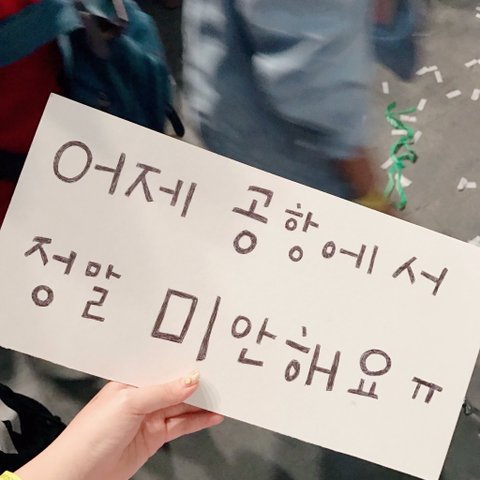 어제 공항에서
정말 미안해요ㅠ